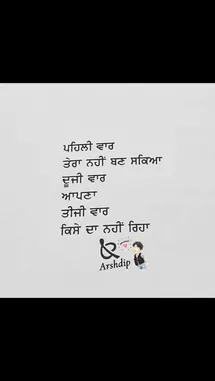 ਪਹਿਲੀ ਵਾਰ
ਤੇਰਾ ਨਹੀਂ ਬਣ ਸਕਿਆ
ਦੂਜੀ ਵਾਰ
ਆਪਣਾ
ਤੀਜੀ ਵਾਰ
ਕਿਸੇ ਦਾ ਨਹੀਂ ਰਿਹਾ
Arshdip